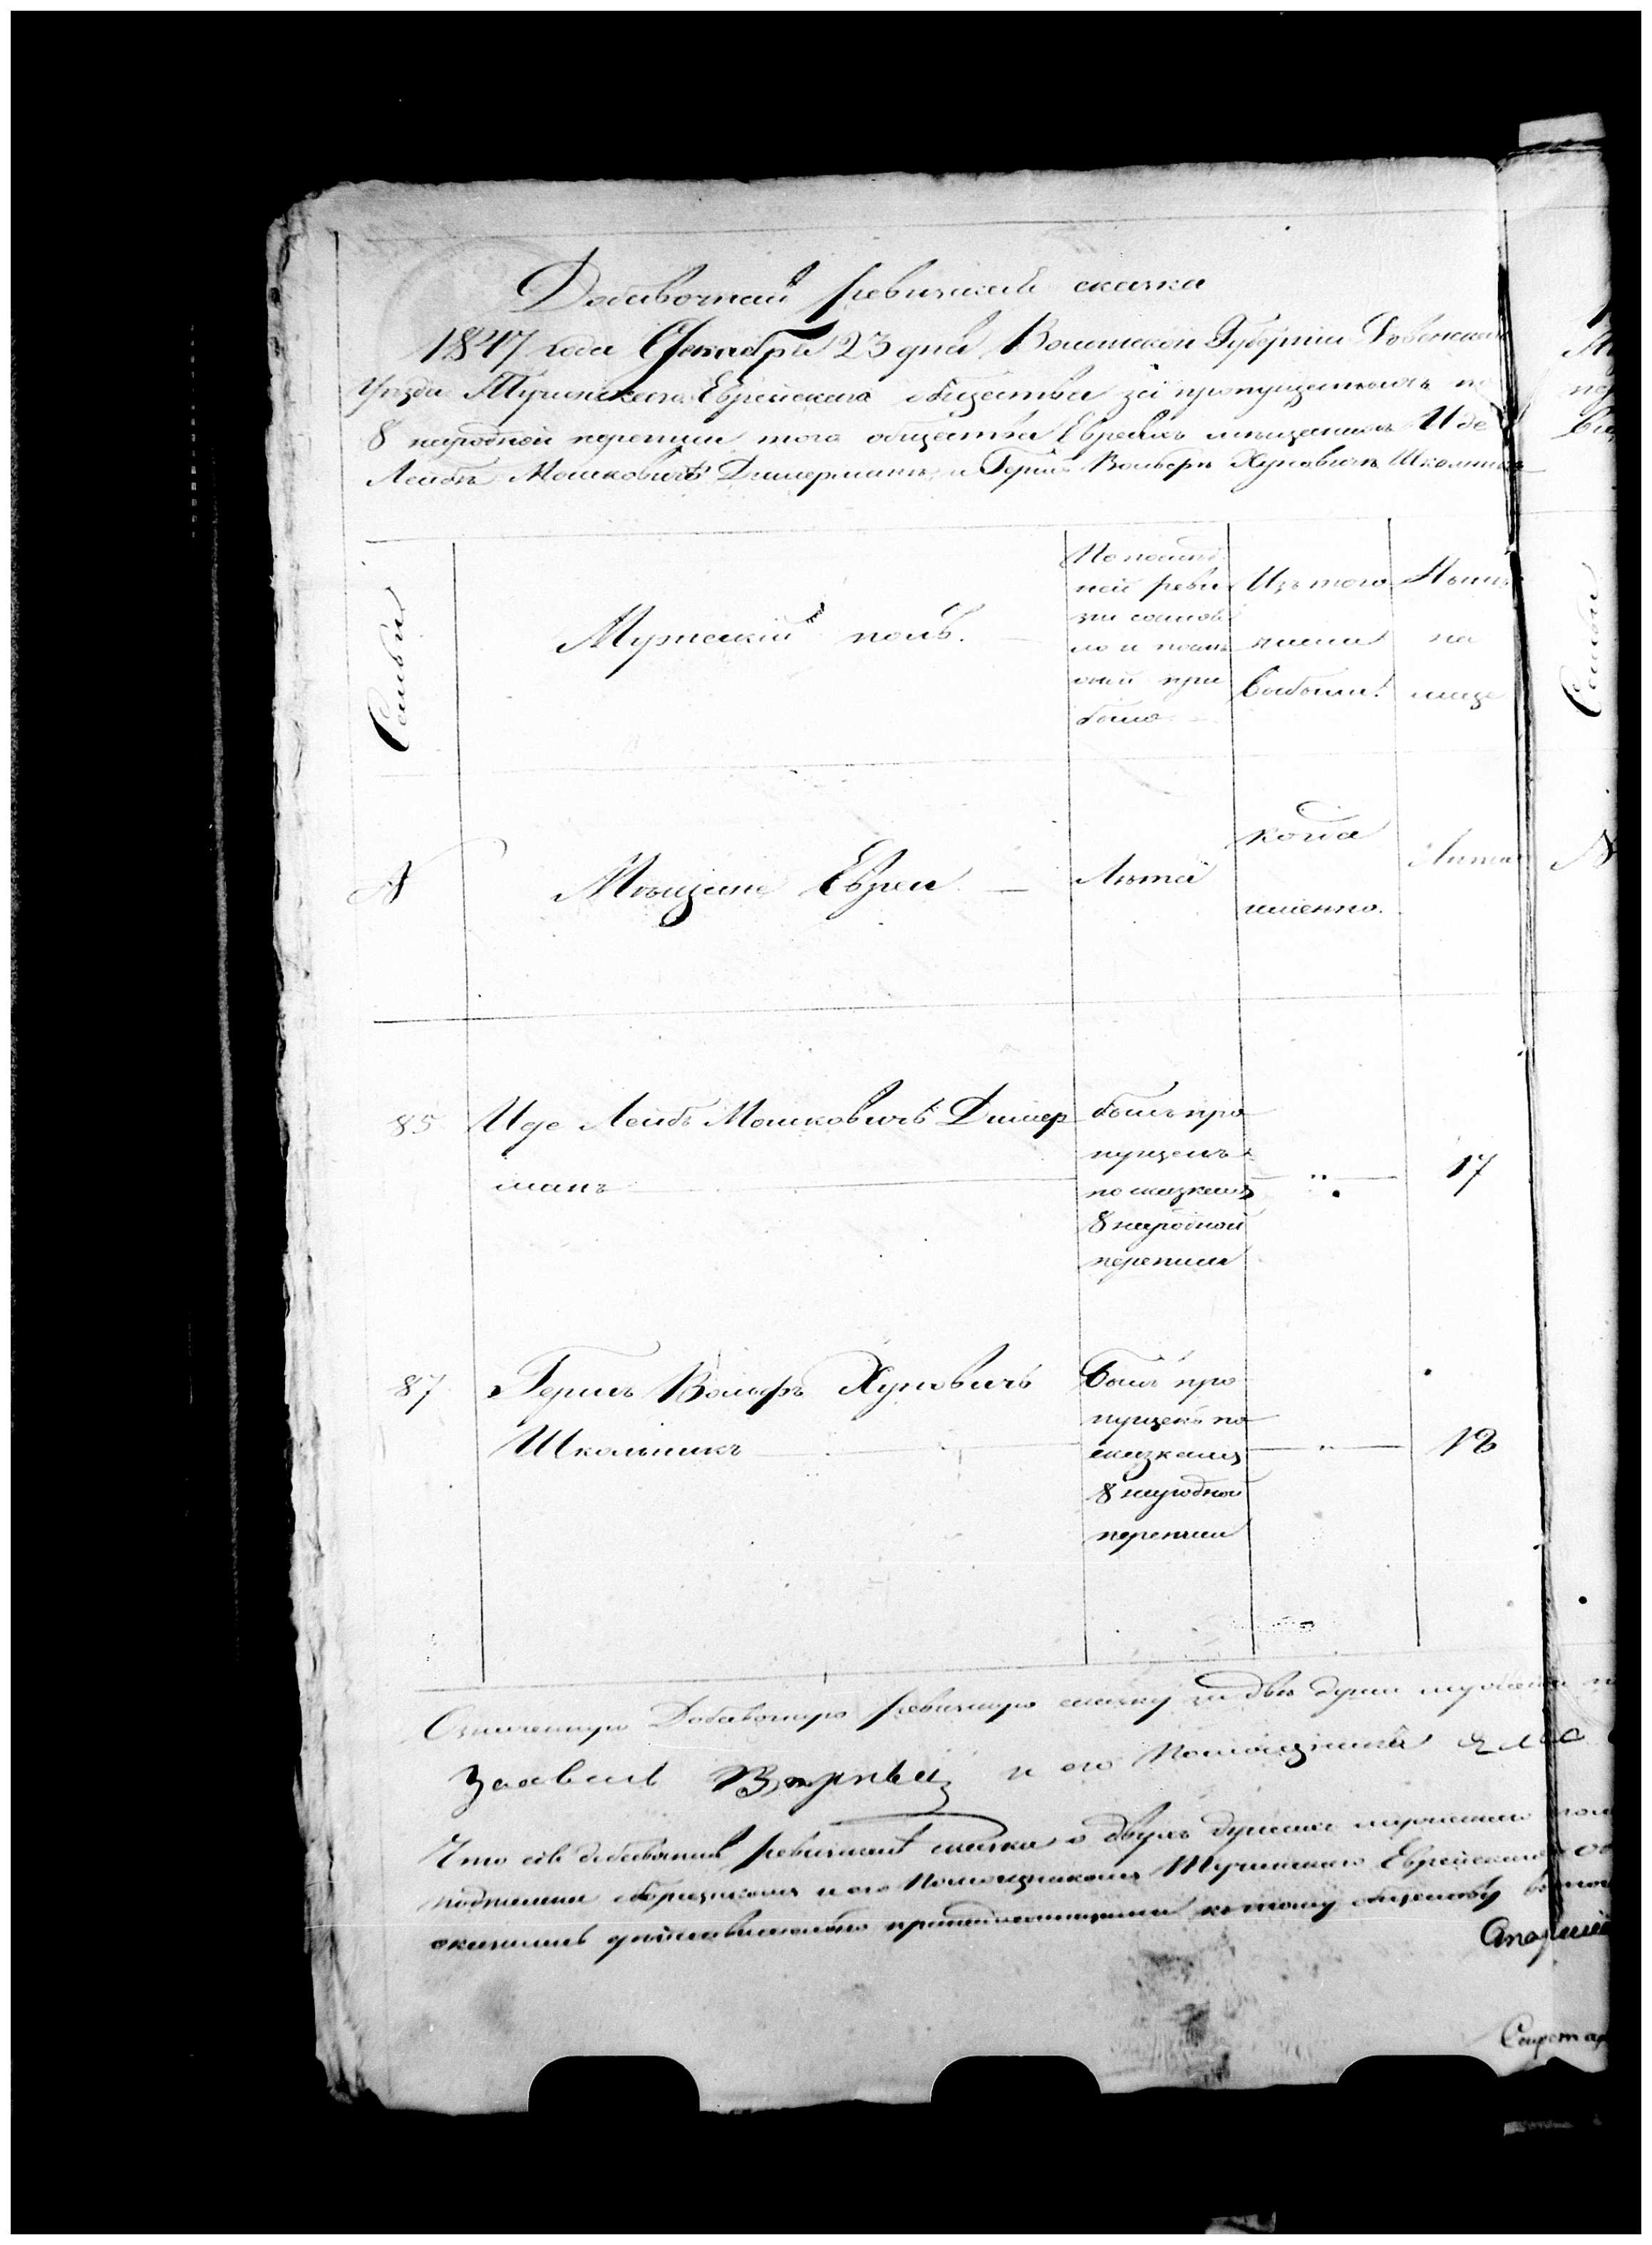 Добавочная ревизская сказка
1847 года Декабря 23 дня Волынской Губернии Ровенскаго
Уезда Тучинскаго Еврейскаго общества за пропущенныхъ по
8 народной переписи того общества Евреяхъ мещанахъ Иде
Лейбъ Мошковичъ Димерманъ и Герш Вольфъ Хуновичъ Школьникъ
Семьи
Мужеский полъ.
По послед
ней реви
зии состоя
ло и после
оной при
было
Изъ того
числа
выбыли
Ныне
на
лице
Семьи
№
Мещане Евреи
Лета
когда
именно.
Лета
№
85
Иде Лейбъ Мошковичъ Димер
манъ
былъ про
пущенъ
по сказкамъ
8 народной
переписи
17
87
Гершъ Вольфъ Хуновичъ
Школьникъ
Былъ про
пущенъ по
сказкамъ
8 народной
переписи
12
Означенную Добавочную ревизскую сказку за две души мужеска
и его Помощника
Что сія добавочная ревизская сказка о двухъ душахъ мужескаго пола
подписана сборщикомъ и его Помощникомъ Тучинскаго Еврейскаго
действительно принадлежащими къ тому обществу
Секретар